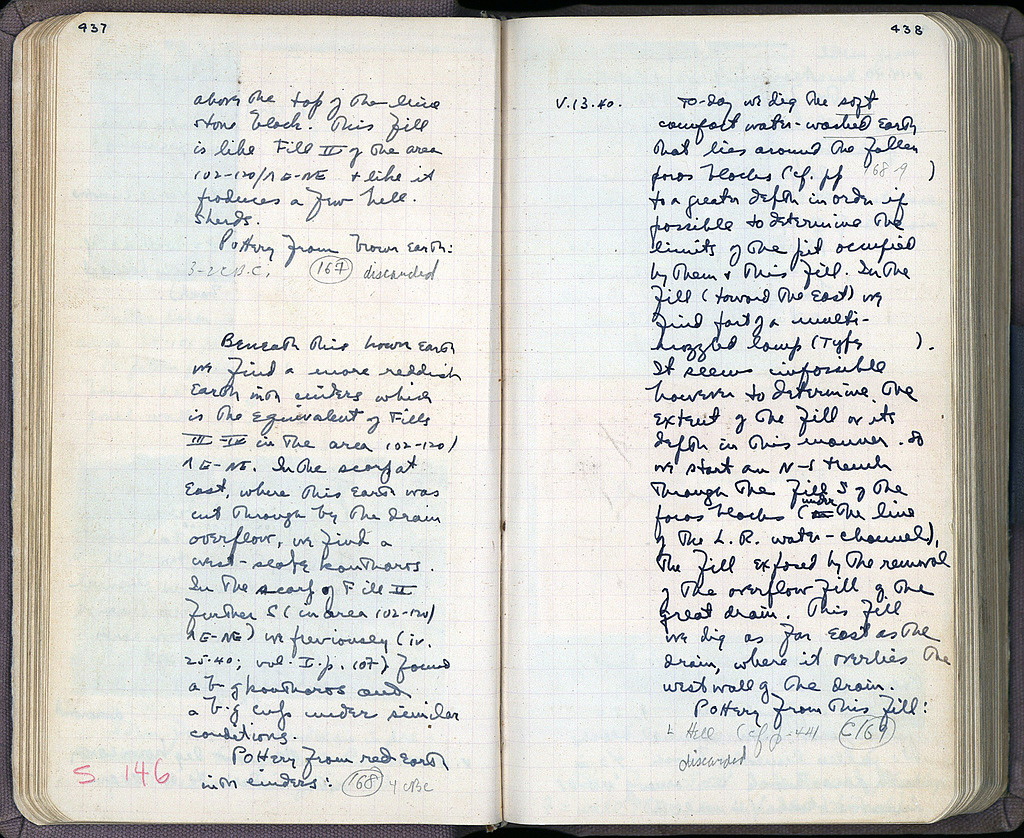 437
above the top of the lime
stone block. This fill
is like Fill II of the area
102-120/ΛΕ-ΝΕ & like it
produces a few hell.
sherds.
Pottery from brown earth:
3-2 c B.C. 167 discarded
Beneath this brown earth
we find a more reddish
earth with cinders which
is the equivalent of Fills
III-IV in the area 102-120/
ΛΕ-ΝΕ. In the scarp at
east, where this earth was
cut through by the drain
overflow, we find a
west-slope kantharos.
In the scarp of Fill II
further S (in area 102-120/
ΛΕ-ΝΕ) we previously (iv.
25.40; vol. I. p. 107) found
a b-g kantharos and
a b-g cup under similar
conditions.
Pottery from red earth
with cinders: 168 4 c BC
S 146
438
V.13.40. To-day we dig the soft
comfort water-washed earth
that lies around the fallen
poros blocks (cf. pp )
to a greater depth in order if
possible to determine the
limits of the pit occupied
by them & this fill. In the
fill (toward the east) we
find part of a multi-
nozzled lamp (Type ).
It seems impossible
however to determine the
extent of the fill or its
depth in this manner. So
we start an N-S trench
through the fill S of the
poros blocks (under the line
of the L.R. water-channel),
the fill exposed by the removal
of the overflow fill of the
great drain. This fill
we dig as far east as the
drain, where it overlies the
west wall of the drain.
Pottery from this fill:
L Hell (cf p. 441) 169
discarded